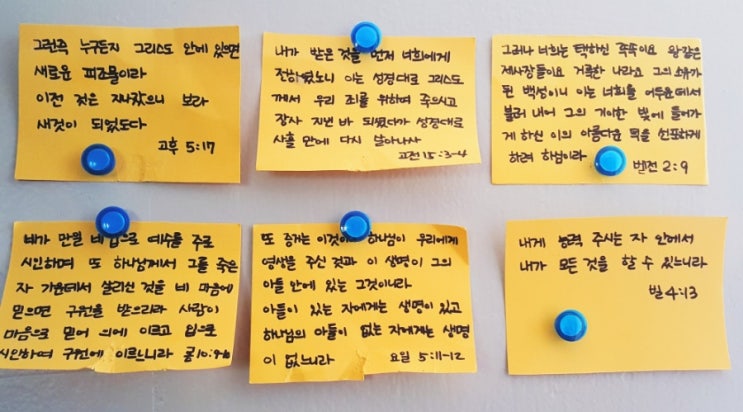 그런즉 누구든지 그리스도 안에 있으면
새로운 피조물이라
이전 것은 지나갔으니 보라
새것이 되었도다
고후 5:17
내가 받은 것을 먼저 너희에게
전하였노니 이는 성경대로 그리스도
께서 우리 죄를 위하여 죽으시고
장사 지낸 바 되셨다가 성경대로
사흘 만에 다시 살아나사
고전 15:3-4
그러나 너희는 택하신 족속이요 왕같은
제사장들이요 거룩한 나라요 그의 소유가
된 백성이니 이는 너희를 어두운데서
불러 내어 그의 기이한 빛에 들어가
게 하신 이의 아름다운 덕을 선포하게
하려 하심이라
벧전 2:9
네가 만일 네 입으로 예수를 주로
시인하며 또 하나님께서 그를 죽은
자 가운데서 살리신 것을 네 마음에
믿으면 구원을 받으리라 사람이
마음으로 믿어 의에 이르고 입으로
시인하여 구원에 이르느니라 롬10:9-10
또 증거는 이것이니 하나님이 우리에게
영생을 주신 것과 이 생명이 그의
아들 안에 있는 그것이니라
아들이 있는 자에게는 생명이 있고
하나님의 아들이 없는 자에게는 생명
이 없느니라 요일 5:11-12
내게 능력 주시는 자 안에서
내가 모든 것을 할 수 있느니라
빌 4:13